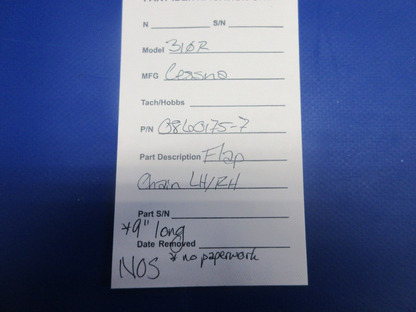 N S/N
Model 310R
MFG Cessna
Tach/Hobbs
P/N 0860175-7
Part Description Flap
Chain LH/RH
Part S/N
*9" long
Date Removed
* no paperwork
NOS